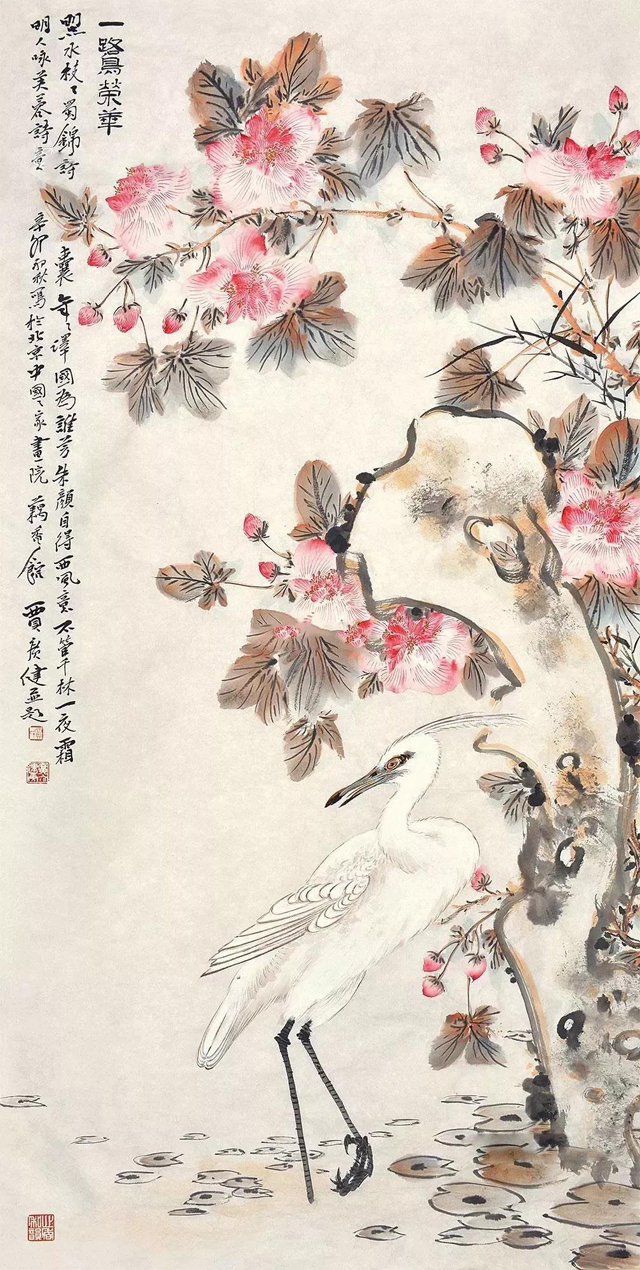 一鷺榮華
照水枝〻蜀錦詩
囊年〻澤國為誰芳朱顏自得西風意不管千林一夜霜
明人咏芙蓉詩意
辛卯初秋寫於北京中國〻家畫院藕香館賈廣健並題